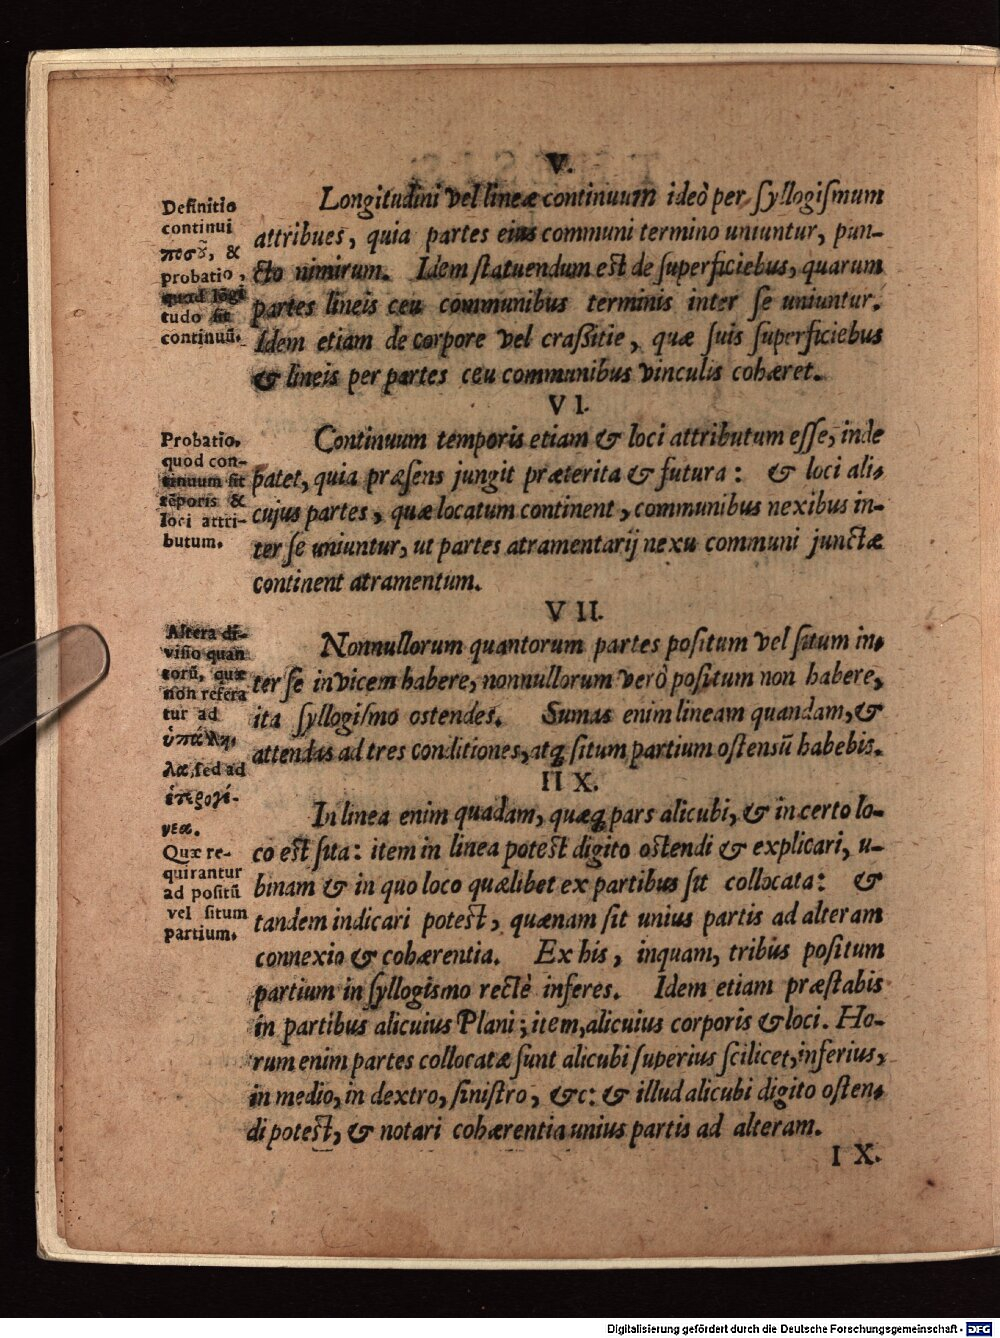 V.
Definitio
continui
ποσοῦ, &
probatio,
quod lōgi
tudo sit
continuū.
Longitudini vel lineæ continuum ideò per ſyllogiſmum
attribues, quia partes eius communi termino uniuntur, pun-
cto nimirum. Idem ſtatuendum est de ſuperficiebus, quarum
partes lineis ceu communibus terminis inter ſe uniuntur.
Idem etiam de corpore vel craſsitie, quæ ſuis ſuperficiebus
& lineis per partes ceu communibus vinculis cohæret.
VI.
Probatio,
quod con-
tinuum ſit
tēporis &
loci attri-
butum.
Continuum temporis etiam & loci attributum eſſe, inde
patet, quia præſens jungit præterita & futura: & loci ali-
cujus partes, quæ locatum continent, communibus nexibus in-
ter ſe uniuntur, ut partes atramentarij nexu communi junctæ
continent atramentum.
VII.
Altera di-
viſio quan
torū, quæ
non refera
tur ad
λæ, ſed ad
Quæ re-
quirantur
ad poſitū
vel ſitum
partium.
Nonnullorum quantorum partes poſitum vel ſitum in-
ter ſe invicem habere, nonnullorum verò poſitum non habere,
ita ſyllogiſmo ostendes. Sumas enim lineam quandam, &
attendas ad tres conditiones, atq; ſitum partium oſtensū habebis.
IIX.
In linea enim quadam, quæq; pars alicubi, & in certo lo-
co est ſita: item in linea potest digito ostendi & explicari, u-
binam & in quo loco quælibet ex partibus ſit collocata: &
tandem indicari potest, quænam ſit unius partis ad alteram
connexio & cohærentia. Ex his, inquam, tribus poſitum
partium in ſyllogismo rectè inferes. Idem etiam præſtabis
in partibus alicuius Plani; item, alicuius corporis & loci. Ho-
rum enim partes collocatæ ſunt alicubi ſuperius ſcilicet, inferius,
in medio, in dextro, ſiniſtro, &c: & illud alicubi digito oſten-
di potest, & notari cohærentia unius partis ad alteram.
IX.
Digitalisierung gefördert durch die Deutsche Forschungsgemeinschaft - DFG